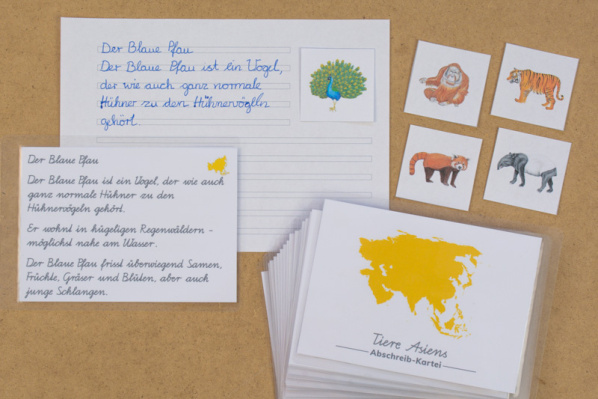 Der Blaue Pfau
Der Blaue Pfau ist ein Vogel,
der wie auch ganz normale
Hühner zu den Hühnervögeln
gehört.
Der Blaue Pfau
Der Blaue Pfau ist ein Vogel, der wie auch
ganz normale Hühner zu den
Hühnervögeln gehört.
Er wohnt in hügeligen Regenwäldern -
möglichst nahe am Wasser.
Der Blaue Pfau frisst überwiegend Samen,
Früchte, Gräser und Blüten, aber auch
junge Schlangen.
Tiere Asiens
Abschreib-Kartei